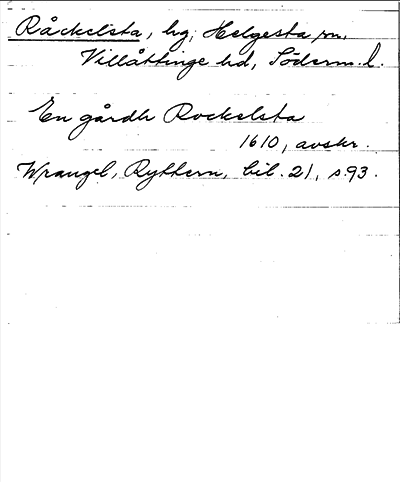 Råckelsta, hg, Helgesta sn.
Villåttinge hd, Söderm. l.
En gårdh Rockelsta
1610, avskr.
Wrangel, Ryttern, bil. 21, s. 93.